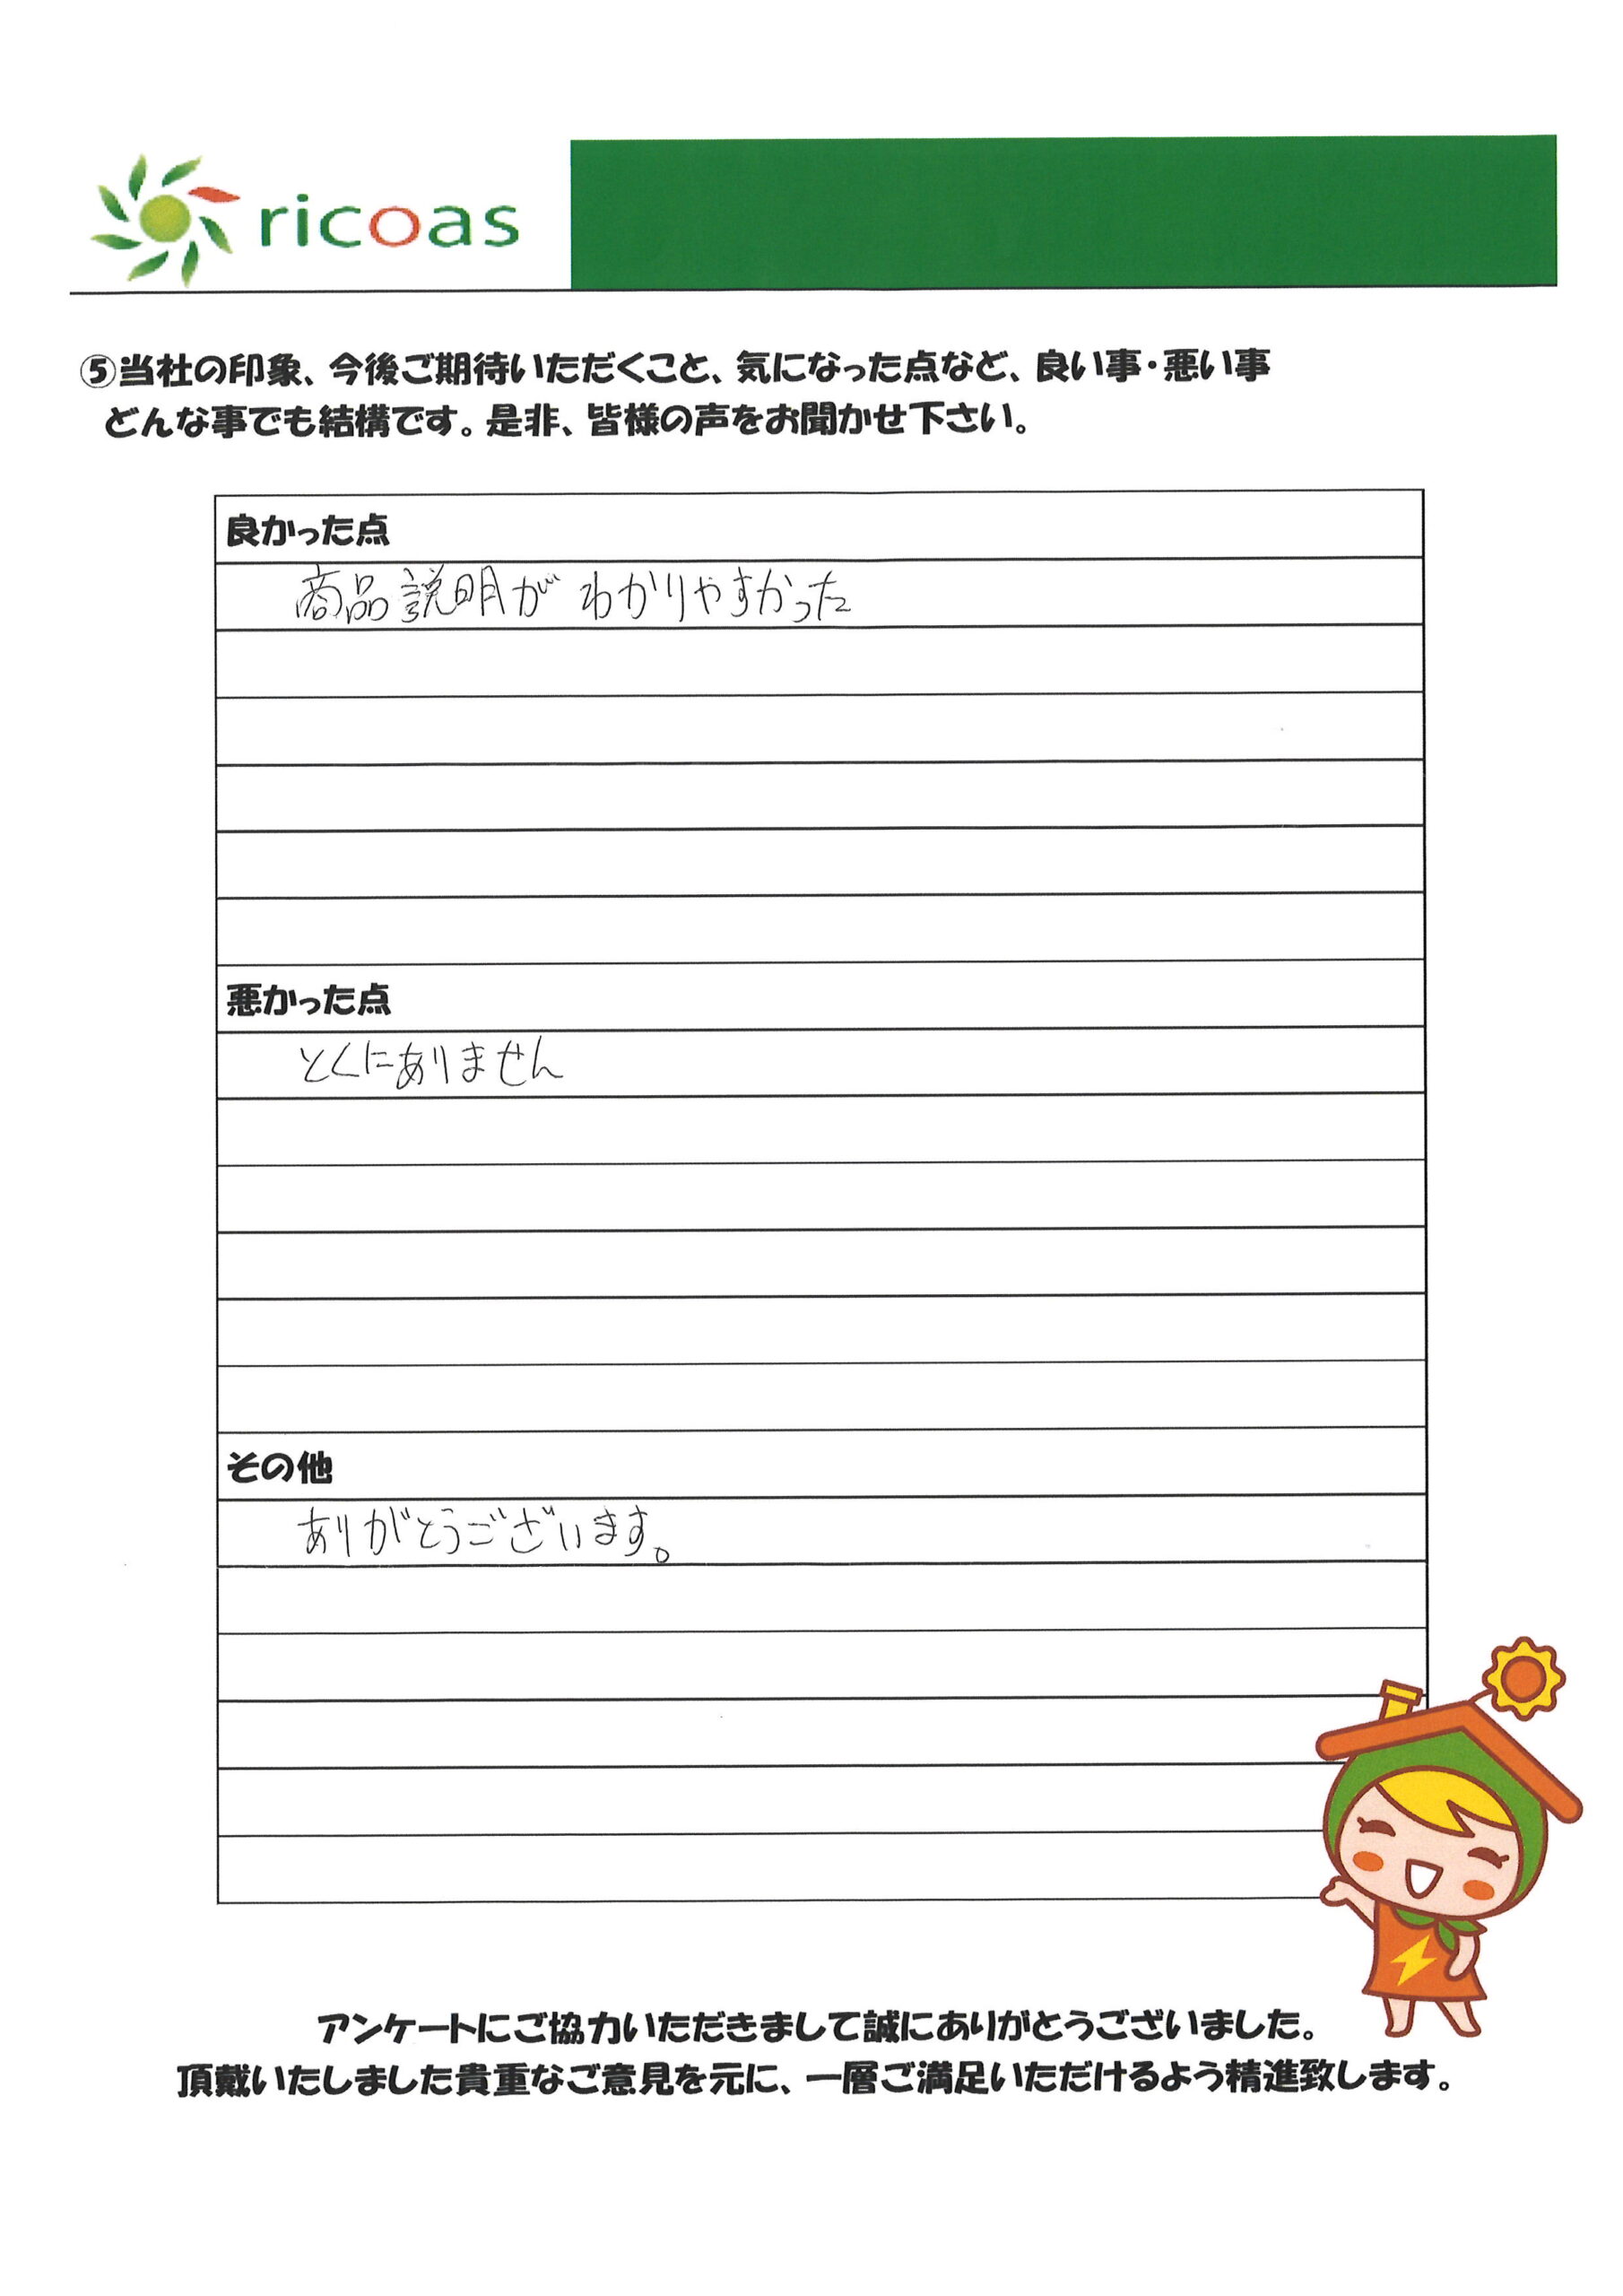 ricoas
⑤当社の印象、今後ご期待いただくこと、気になった点など、良い事・悪い事
どんな事でも結構です。是非、皆様の声をお聞かせ下さい。
良かった点
商品説明がわかりやすかった
悪かった点
とくにありません
その他
ありがとうございます。
アンケートにご協力いただきまして誠にありがとうございました。
頂戴いたしました貴重なご意見を元に、一層ご満足いただけるよう精進致します。